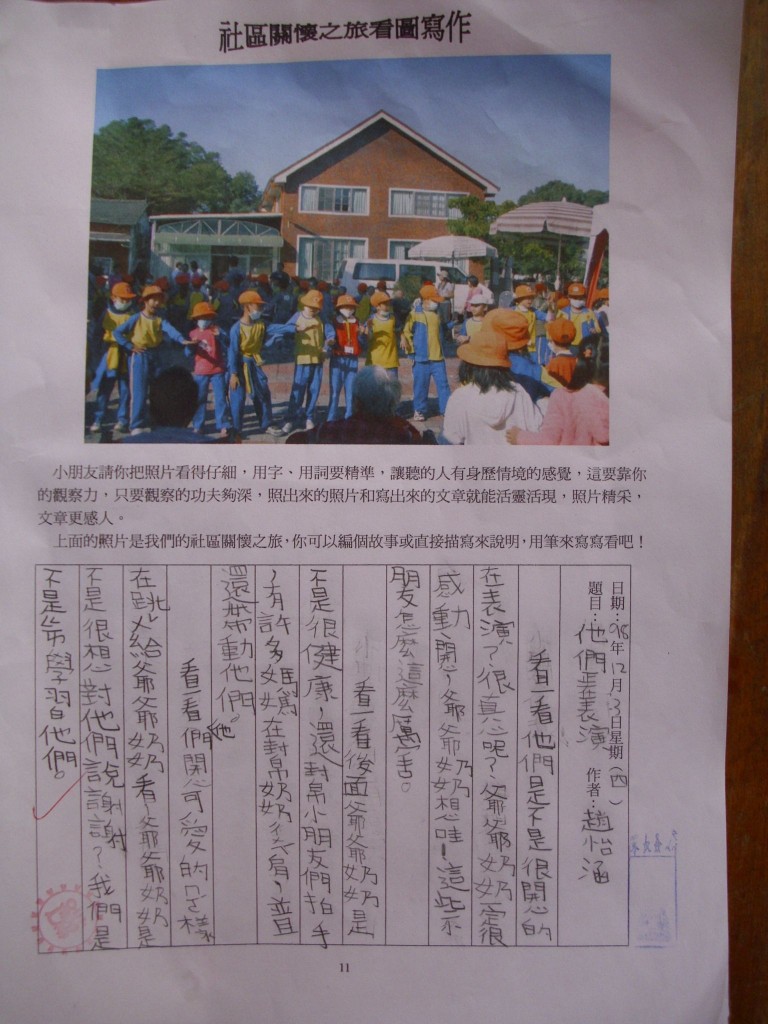 社區關懷之旅看圖寫作
小朋友請你把照片看得仔細，用字、用詞要精準，讓聽的人有身歷情境的感覺，這要靠你
的觀察力，只要觀察的功夫夠深，照出來的照片和寫出來的文章就能活靈活現，照片精采，
文章更感人。
上面的照片是我們的社區關懷之旅，你可以編個故事或直接描寫來說明，用筆來寫寫看吧！
日期：98年12月3日星期（四）
題目：他們正在表演 作者：趙怡涵
看一看他們是不是很開心的
在表演？很真心呢？爺爺奶奶一定很
感動、開心，爺爺奶奶想哇！這些小
朋友怎麼這麼厲害。
看一看後面爺爺奶奶是
不是很健康，還對帛小朋友們拍手
，有許多媽媽在封帛奶奶，並且
還帶動他們。
看一看他們開心可愛的
在跳火給爺爺奶奶看，爺爺奶奶是
不是很想對他們說謝謝？我們是
不是帛學習自他們。
11